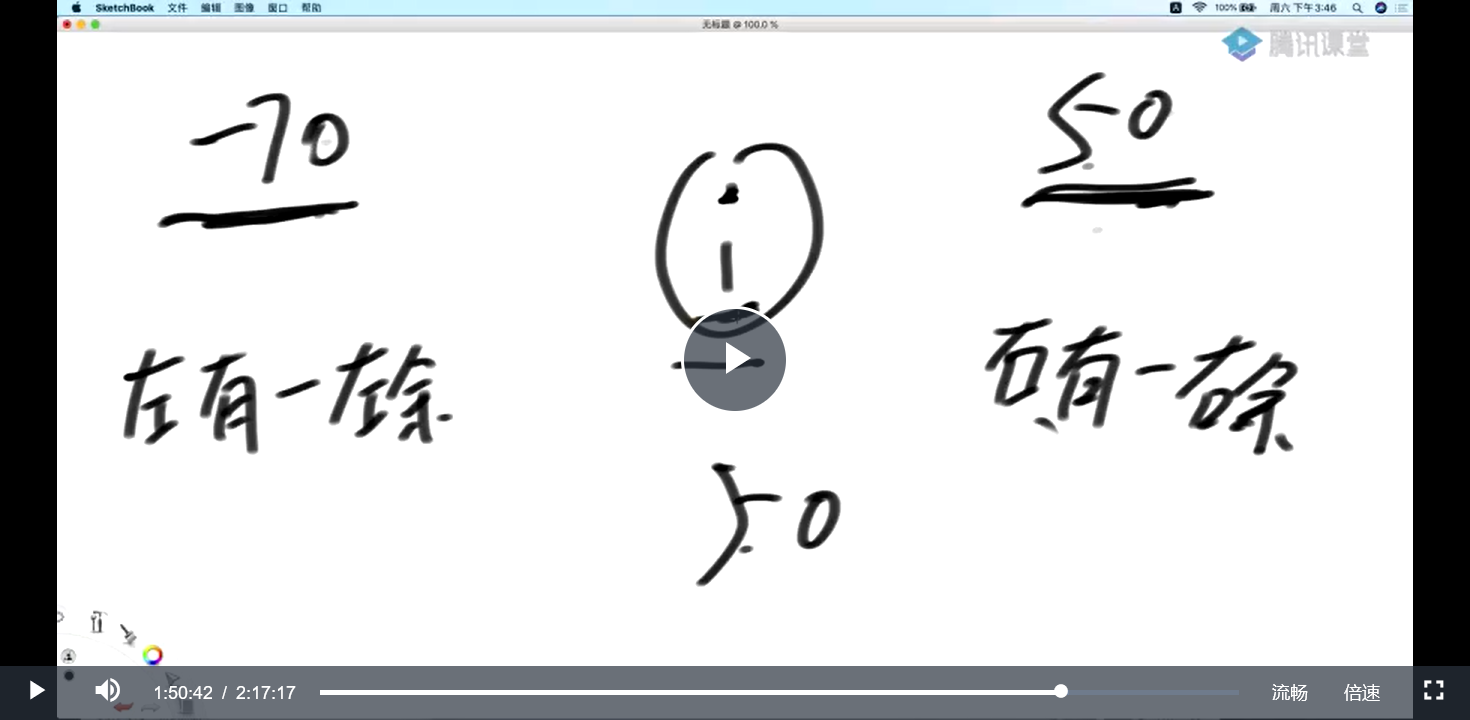 SketchBook 文件 编辑 图像 窗口 帮助
100% 周六 下午3:46
无标题 @ 100.0 %
腾讯课堂
-70
50
1
左有一左除
右有一右除
50
1:50:42 / 2:17:17
流畅 倍速